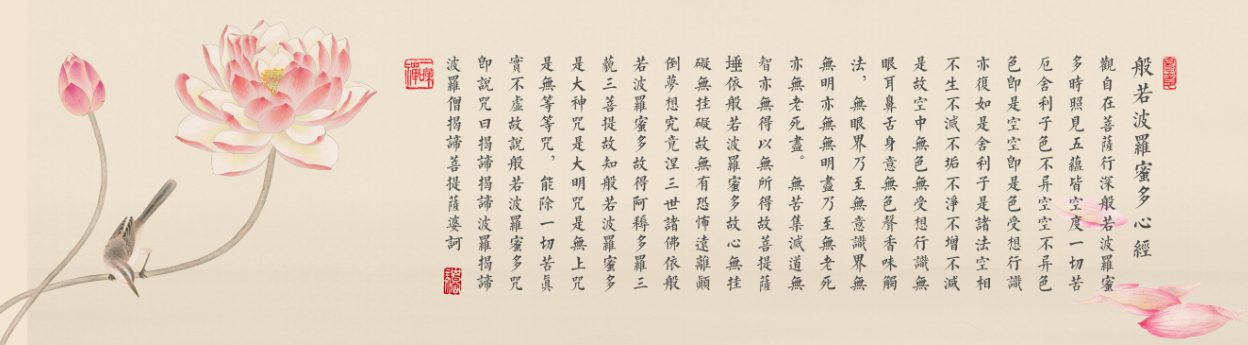 般若波羅蜜多心經
觀自在菩薩行深般若波羅蜜
多時照見五蘊皆空度一切苦
厄舍利子色不异空空不异色
色即是空空即是色受想行識
亦復如是舍利子是諸法空相
不生不滅不垢不淨不增不減
是故空中無色無受想行識無
眼耳鼻舌身意無色聲香味觸
法，無眼界乃至無意識界無
無明亦無無明盡乃至無老死
亦無老死盡。無苦集滅道無
智亦無得以無所得故菩提薩
埵依般若波羅蜜多故心無挂
礙無挂礙故無有恐怖遠離顛
倒夢想究竟涅三世諸佛依般
若波羅蜜多故得阿耨多羅三
藐三菩提故知般若波羅蜜多
是大神咒是大明咒是無上咒
是無等等咒，能除一切苦眞
實不虛故說般若波羅蜜多咒
即說咒曰揭諦揭諦波羅揭諦
波羅僧揭諦菩提薩婆訶